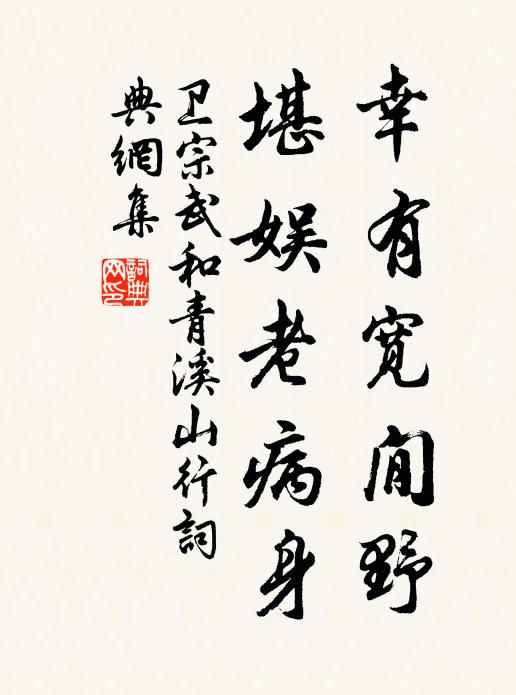 幸有寛閒野
堪娱老病身
卫宗武和青溪山行詞
典網集
詞典
网印